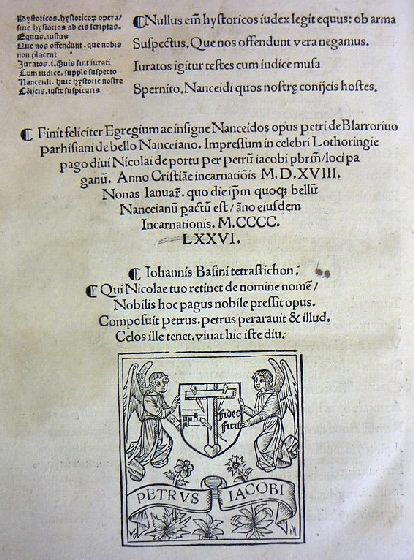 Hystoricos. hystoricos opera/
siue hystorica ab eis scriptas.
Equus. iustus
Que nos offendunt. que nobis
non placent
Iuratos. i. Quis sunt iurati
Cum iudice. supple suspecto
Nanceidi. huic hystorie nostre
¶Nullus em̄ hystoricos iudex legit equus: ob arma
Suspectus. Que nos offendunt vera negamus.
Iuratos igitur testes cum iudice musa
Spernito. Nanceidi quos nostrę conijcis hostes.
¶ Finit feliciter Egregium ac insigne Nanceidos opus petri de Blarroriuo
parhisiani de bello Nanceiano. Impressum in celebri Lothoringie
pago diui Nicolai de portu per petrū iacobi pbrm̄/loci pa
ganū. Anno Cristiāe incarnatiōis M.D.XVIII.
Nonas Ianuar. quo die ip̄m quoq; bellū
Nanceianū pactū est/āno eiusdem
Incarnationis. M.CCCC.
LXXVI.
¶ Iohannis Basini tetrastichon/
¶ Qui Nicolae tuo retinet de nomine nomē/
Nobilis hoc pagus nobile pressit opus.
Composuit petrus. petrus perarauit & illud.
Celos ille tenet. viuat hic iste diu.
PETRVS IACOBI